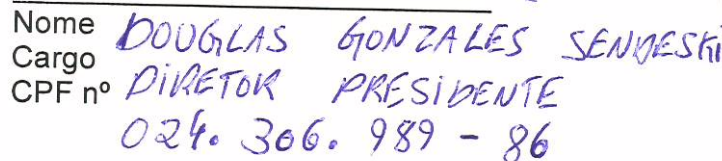 Nome DOUGLAS GONZALES SENDESKI
Cargo DIRETOR PRESIDENTE
CPF nº 024.306.989-86